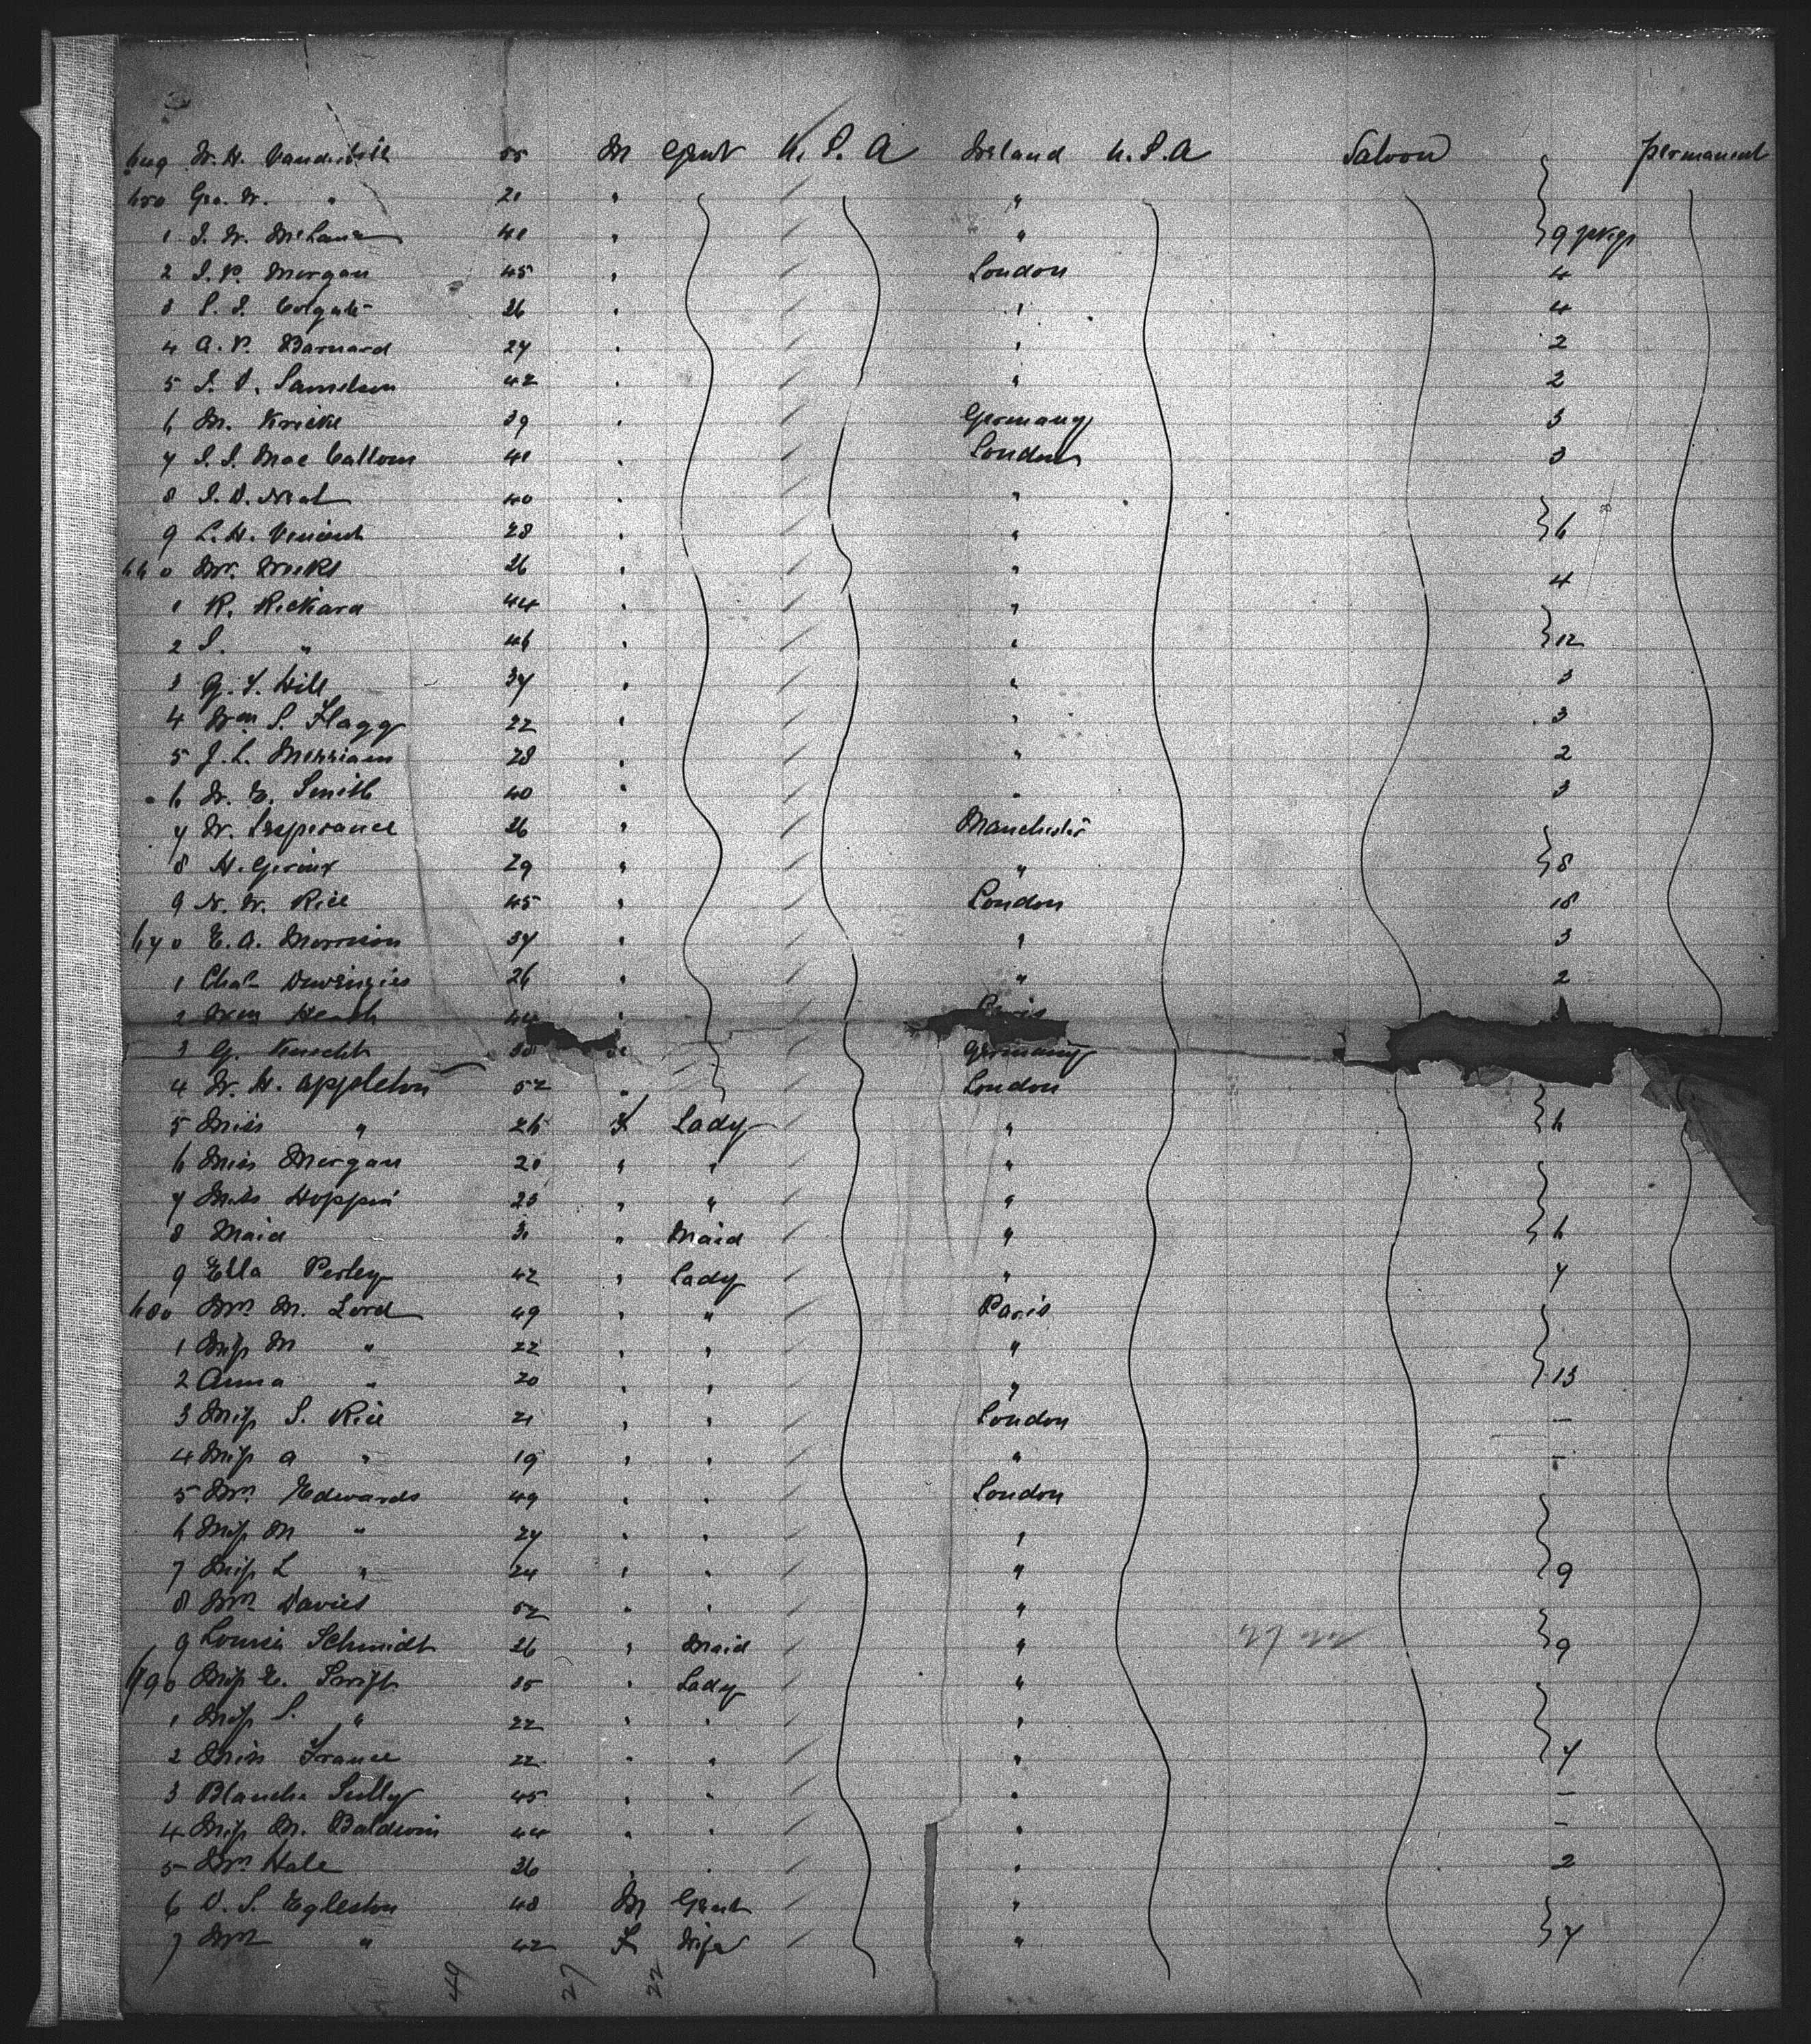 649 W. H. Vanderbilt 55 M Gent U. S. A Ireland U. S. A Saloon permanent
650 Geo. W. " 21 " "
1 S. W. 41 " " 9 pkgs
2 J. P. Morgan 45 " London 4
3 S. S. Colgate 26 " " 4
4 A. P. Barnard 27 " " 2
5 S. D. Samelson 42 " " 2
6 M. Kricke 39 " Germany 3
7 J. J. Mac Callom 41 " London 3
8 J. D. Neal 40 " "
9 L. H. 28 " " 6
660 Mr. Weeks 26 " " 4
1 R. Rickard 44 " "
2 S. " 46 " " 12
3 G. F. Hill 37 " " 3
4 Wm S. Flagg 22 " " 3
5 J. L. Merriam 28 " " 2
6 W. E. Smith 40 " " 3
7 W. Lesperance 26 " Manchester
8 H. Giroux 29 " " 8
9 N. W. Rice 45 " London 18
670 E. A. Morrison 37 " " 3
1 Chas 26 " " 2
2 Heath 44 " Paris
3 G. Knecht 30 " Germany
4 W. H. Appleton 52 " London
5 Miss " 26 F Lady " 6
6 Miss Morgan 21 " " "
7 Miss Hoppin 23 " " "
8 Maid 31 " Maid " 6
9 Ella Perley 42 " Lady " 7
680 Mrs M. Lord 49 " " Paris
1 Miss M " 22 " " "
2 Anna " 20 " " " 13
3 Miss S. Rice 21 " " London —
4 Miss A " 19 " " " —
5 Mrs Edwards 49 " " London
6 Miss M " 27 " " "
7 Miss L " 24 " " " 9
8 Mrs Davies 52 " " "
9 Louise Schmidt 26 " Maid " 9
690 Miss E. Swift 35 " Lady "
1 Miss S. " 22 " " "
2 Miss France 22 " " " 7
3 Blanche Sully 45 " " " —
4 Miss M. Baldwin 44 " " " —
5 Mrs Hale 36 " " " 2
6 D. S. Egleston 48 M Gent "
7 Mrs " 42 F Wife " 7
49 27 22